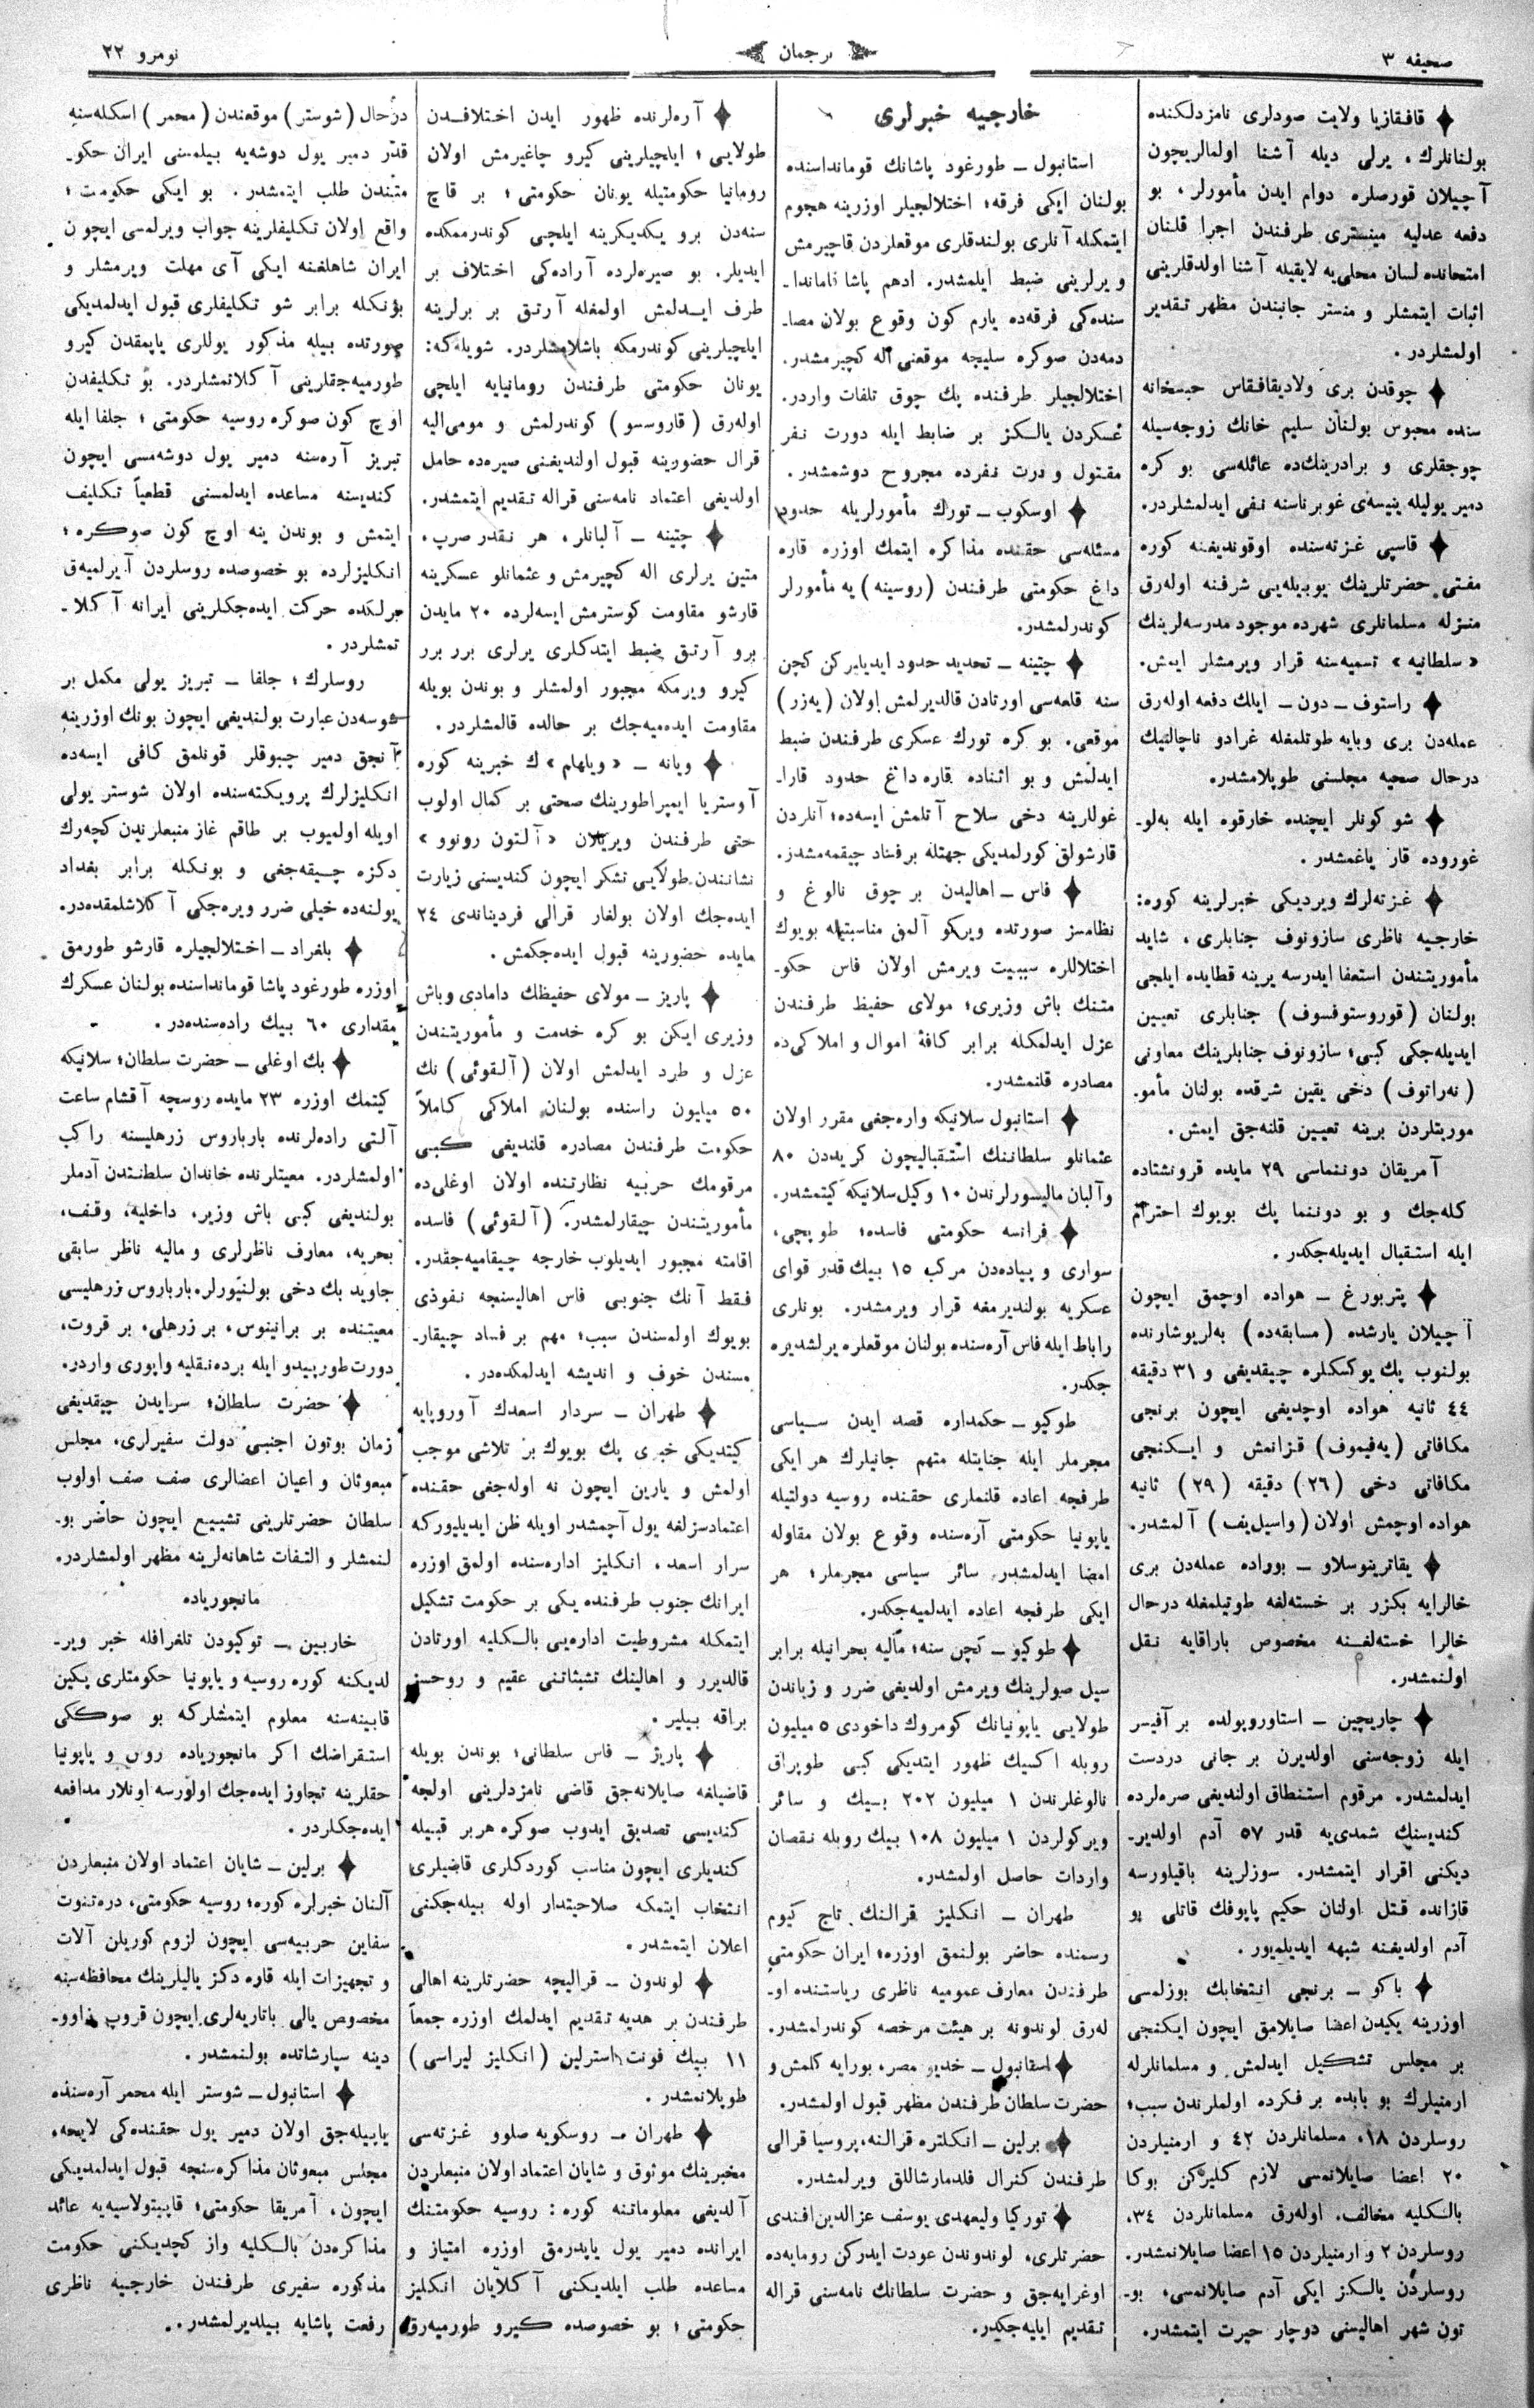 صحیفه ۳
ترجمان
نومرو ۲۲
قافقازیا ولایت صودلری نامزدلكنده
بولنانلرك، یرلی دیله آشنا اولمالریچون
آچیلان قورصلره دوام ایدن مأمورلر، بو
دفعه عدلیه مینستری طرفندن اجرا قلنان
امتحانده لسان محلی‌یه لایقیله آشنا اولدقلرینی
اثبات ایتمشلر و منستر جانبندن مظهر تقدیر
اولمشلردر.
چوقدن بری ولادیقافقاس حبسخانه
سنده محبوس بولنان سلیم خانك زوجه‌سیله
چوجقلری و برادرینك‌ده عائله‌سی بو كره
دمیر یولیله ینیسه‌ی غوبرناسنه نفی ایدلمشلردر.
قاسپی غزته‌سنده اوقوندیغنه كوره
مفتی حضرتلرینك یوبیله‌یی شرفنه اوله‌رق
منزله مسلمانلری شهرده موجود مدرسه‌لرینك
«سلطانیه» تسمیه‌سنه قرار ویرمشلر ایمش.
راستوف ـ دون ـ ایلك دفعه اوله‌رق
عمله‌دن بری وبایه طوتلمغله غرادو ناچالنیك
درحال صحیه مجلسنی طوپلامشدر.
شو كونلر ایچنده خارقوه ایله به‌لو-
غوروده قار یاغمشدر.
غزته‌لرك ویردیكی خبرلرینه كوره:
خارجیه ناظری سازونوف جنابلری، شاید
مأموریتندن استعفا ایدرسه یرینه قطایده ایلچی
بولنان (قوروستوفسوف) جنابلری تعیین
ایدیله‌جكی كبی؛ سازونوف جنابلرینك معاونی
(نه‌راتوف) دخی یقین شرقده بولنان مأمو-
موریتلردن برینه تعیین قلنه‌جق ایمش.
آمریقان دوننماسی ۲۹ مایده قرونشتاده
كله‌جك و بو دوننما پك بویوك احترام
ایله استقبال ایدیله‌جكدر.
پتربورغ ـ هواده اوچمق ایچون
آچیلان یارشده (مسابقه‌ده) به‌لریوشارنده
بولنوب پك یوكسكلره چیقدیغی و ۳۱ دقیقه
٤٤ ثانیه هواده اوچدیغی ایچون برنجی
مكافاتی (یه‌فیموف) قزانمش و ایكنجی
مكافاتی دخی (۲٦) دقیقه (۲۹) ثانیه
هواده اوچمش اولان (واسیل‌یف) آلمشدر.
یقاترینوسلاو ـ بوراده عمله‌دن بری
خالرایه بكزر بر خسته‌لغه طوتیلمغله درحال
خالرا خسته‌لغنه مخصوص باراقایه نقل
اولنمشدر.
چاریچین ـ استاوروپولده بر آفیسر
ایله زوجه‌سنی اولدیرن بر جانی دردست
ایدلمشدر. مرقوم استنطاق اولندیغی صره‌لرده
كندیسنك شمدی‌یه قدر ۵۷ آدم اولدیر-
دیكنی اقرار ایتمشدر. سوزلرینه باقیلورسه
قازانده قتل اولنان حكیم پاپوفك قاتلی بو
آدم اولدیغنه شبهه ایدیلمیور.
باكو ـ برنجی انتخابك بوزلمسی
اوزرینه یكیدن اعضا صایلامق ایچون ایكنجی
بر مجلس تشكیل ایدلمش و مسلمانلرله
ارمنیلرك بو بابده بر فكرده اولملرندن سبب؛
روسلردن ۱۸، مسلمانلردن ٤۲ و ارمنیلردن
۲۰ اعضا صایلانمسی لازم كلیركن بوكا
بالكلیه مخالف، اوله‌رق مسلمانلردن ۳٤،
روسلردن ۲ و ارمنیلردن ۱۵ اعضا صایلانمشدر.
روسلردن یالكز ایكی آدم صایلانمسی، بو-
تون شهر اهالیسنی دوچار حیرت ایتمشدر.
خارجیه خبرلری
استانبول ـ طورغود پاشانك قوماندا‌سنده
بولنان ایكی فرقه؛ اختلالجیلر اوزرینه هجوم
ایتمكله آنلری بولندقلری موقعلردن قاچیرمش
و یرلرینی ضبط ایلمشدر. ادهم پاشا قاماندا-
سنده‌كی فرقه‌ده یارم كون وقوع بولان مصا-
دمه‌دن صوكره سلیجه موقعنی اله كچیرمشدر.
اختلالجیلر طرفنده پك چوق تلفات واردر.
عسكردن یالكز بر ضابط ایله دورت نفر
مقتول و درت نفرده مجروح دوشمشدر.
اوسكوب ـ تورك مأمورلریله حدود
مسئله‌سی حقنده مذاكره ایتمك اوزره قاره
داغ حكومتی طرفندن (روسینه)‌یه مأمورلر
كوندرلمشدر.
چتینه ـ تحدید حدود ایدیلیركن كچن
سنه قلعه‌سی اورتادن قالدیرلمش اولان (یه‌زر)
موقعی. بو كره تورك عسكری طرفندن ضبط
ایدلمش و بو اثناده قاره داغ حدود قارا-
غوللارینه دخی سلاح آتلمش ایسه‌ده؛ آنلردن
قارشولق كورلمدیكی جهتله برفساد چیقمه‌مشدر.
فاس ـ اهالیدن بر چوق نالوغ و
نظامسز صورتده ویركو آلمق مناسبتیله بویوك
اختلاللره سببیت ویرمش اولان فاس حكو-
متنك باش وزیری؛ مولای حفیظ طرفندن
عزل ایدلمكله برابر كافهٔ اموال و املاكی‌ده
مصادره قلنمشدر.
استانبول سلانیكه واره‌جغی مقرر اولان
عثمانلو سلطاننك استقبالیچون كریددن ۸۰
وآلبان مالیسورلرندن ۱۰ وكیل سلانیكه كیتمشدر.
فرانسه حكومتی فاسده؛ طوپچی،
سواری و پیاده‌دن مركب ۱۵ بیك قدر قوای
عسكریه بولندیرمغه قرار ویرمشدر. بونلری
راباط ایله فاس آره‌سنده بولنان موقعلره یرلشدیره
جكدر.
طوكیو ـ حكمداره قصد ایدن سیاسی
مجرملر ایله جنایتله متهم جانیلرك هر ایكی
طرفجه اعاده قلنملری حقنده روسیه دولتیله
یاپونیا حكومتی آره‌سنده وقوع بولان مقاوله
امضا ایدلمشدر. سائر سیاسی مجرملر؛ هر
ایكی طرفجه اعاده ایدلمیه‌جكدر.
طوكیو ـ كچن سنه؛ مالیه بحرانیله برابر
سیل صولرینك ویرمش اولدیغی ضرر و زیاندن
طولایی یاپونیانك كومروك داخودی ۵ میلیون
روبله اكسیك ظهور ایتدیكی كبی طوپراق
نالوغلرندن ۱ میلیون ۲۰۲ بیك و سائر
ویركولردن ۱ میلیون ۱۰۸ بیك روبله نقصان
واردات حاصل اولمشدر.
طهران ـ انكلیز قرالنك تاج كیوم
رسمنده حاضر بولنمق اوزره؛ ایران حكومتی
طرفندن معارف عمومیه ناظری ریاستنده او-
له‌رق لوندونه بر هیئت مرخصه كوندرلمشدر.
استانبول ـ خدیو مصر، بورایه كلمش و
حضرت سلطان طرفندن مظهر قبول اولمشدر.
برلین ـ انكلتره قرالنه، پروسیا قرالی
طرفندن كنرال فلدمارشاللق ویرلمشدر.
توركیا ولیعهدی یوسف عزالدین افندی
حضرتلری، لوندوندن عودت ایدركن رومایه‌ده
اوغرایه‌جق و حضرت سلطانك نامه‌سنی قراله
تقدیم ایلیه‌جكدر.
آره‌لرنده ظهور ایدن اختلافدن
طولایی؛ ایلچیلرینی كیرو چاغیرمش اولان
رومانیا حكومتیله یونان حكومتی؛ بر قاچ
سنه‌دن برو یكدیكرینه ایلچی كوندرممكده
ایدیلر. بو صیره‌لرده آراده‌كی اختلاف بر
طرف ایدلمش اولمغله آرتق بر برلرینه
ایلچیلرینی كوندرمكه باشلامشلردر. شویله‌كه:
یونان حكومتی طرفندن رومانیایه ایلچی
اوله‌رق (قاروسسو) كوندرلمش و مومی‌الیه
قرال حضورینه قبول اولندیغنی صیره‌ده حامل
اولدیغی اعتماد نامه‌سنی قراله تقدیم ایتمشدر.
چتینه ـ آلبانلر، هر نقدر صرپ،
متین یرلری اله كچیرمش و عثمانلو عسكرینه
قارشو مقاومت كوسترمش ایسه‌لرده ۲۰ مایدن
برو آرتق ضبط ایتدكلری یرلری برر برر
كیرو ویرمكه مجبور اولمشلر و بوندن بویله
مقاومت ایده‌میه‌جك بر حالده قالمشلردر.
ویانه ـ «ویلهام»ك خبرینه كوره
آوستریا ایمپراطورینك صحتی بر كمال اولوب
حتی طرفندن ویریلان «آلتون رونوو»
نشانندن طولایی تشكر ایچون كندیسنی زیارت
ایده‌جك اولان بولغار قرالی فردیناندی ۲٤
مایده حضورینه قبول ایده‌جكمش.
پاریز ـ مولای حفیظك دامادی وباش
وزیری ایكن بو كره خدمت و مأموریتندن
عزل و طرد ایدلمش اولان (آلقوئی)نك
۵۰ میلیون راسنده بولنان املاكی كاملاً
حكومت طرفندن مصادره قلندیغی كبی
مرقومك حربیه نظارتنده اولان اوغلی‌ده
مأموریتندن چیقارلمشدر. (آلقوئی) فاسده
اقامته مجبور ایدیلوب خارجه چیقامیه‌جقدر.
فقط آنك جنوبی فاس اهالیسنجه نفوذی
بویوك اولمسندن سبب؛ مهم بر فساد چیقار-
مسندن خوف و اندیشه ایدلمكده‌در.
طهران ـ سردار اسعدك آوروپایه
كیتدیكی خبری پك بویوك بر تلاشی موجب
اولمش و یارین ایچون نه اوله‌جغی حقنده
اعتمادسزلغه یول آچمشدر اویله ظن ایدیلیوركه
سرار اسعد، انكلیز اداره‌سنده اولمق اوزره
ایرانك جنوب طرفنده یكی بر حكومت تشكیل
ایتمكله مشروطیت اداره‌یی بالكلیه اورتادن
قالدیرر و اهالینك تشبثاتنی عقیم و روحسز
براقه بیلیر.
پاریژ ـ فاس سلطانی؛ بوندن بویله
قاضیلغه صایلانه‌جق قاضی نامزدلرینی اولجه
كندیسی تصدیق ایدوب صوكره هربر قبیله
كندیلری ایچون مناسب كوردكلری قاضیلری
انتخاب ایتمكه صلاحیتدار اوله بیله‌جكنی
اعلان ایتمشدر.
لوندون ـ قرالیچه حضرتلرینه اهالی
طرفندن بر هدیه تقدیم ایدلمك اوزره جمعاً
۱۱ بیك فونت استرلین (انكلیز لیراسی)
طوپلانمشدر.
طهران ـ روسكویه صلوو غزته‌سی
مخبرینك موثوق و شایان اعتماد اولان منبعلردن
آلدیغی معلوماتنه كوره: روسیه حكومتنك
ایرانده دمیر یول یاپدرمق اوزره امتیاز و
مساعده طلب ایلدیكنی آكلایان انكلیز
حكومتی؛ بو خصوصده كیرو طورمیه‌رق
درحال (شوستر) موقعندن (محمر) اسكله‌سنه
قدر دمیر یول دوشه‌یه بیلمسنی ایران حكو-
متندن طلب ایتمشدر. بو ایكی حكومت؛
واقع اولان تكلیفلرینه جواب ویرلمسی ایچون
ایران شاهلغنه ایكی آی مهلت ویرمشلر و
بونكله برابر شو تكلیفلری قبول ایدلمدیكی
صورتده بیله مذكور یوللری یاپمقدن كیرو
طورمیه‌جقلرینی آكلاتمشلردر. بو تكلیفدن
اوچ كون صوكره روسیه حكومتی؛ جلفا ایله
تبریز آره‌سنه دمیر یول دوشه‌مسی ایچون
كندیسنه مساعده ایدلمسنی قطعیاً تكلیف
ایتمش و بوندن ینه اوچ كون صوكره؛
انكلیزلرده بو خصوصده روسلردن آیرلمیه‌ق
برلكده حركت ایده‌جكلرینی ایرانه آكلا-
تمشلردر.
روسلرك؛ جلفا ـ تبریز یولی مكمل بر
شوسه‌دن عبارت بولندیغی ایچون بونك اوزرینه
آنجق دمیر چبوقلر قونلمق كافی ایسه‌ده
انكلیزلرك پرویكته‌سنده اولان شوستر یولی
اویله اولمیوب بر طاقم غاز منبعلرندن كچه‌رك
دكزه چیقه‌جغی و بونكله برابر بغداد
یولنه‌ده خیلی ضرر ویره‌جكی آكلاشلمقده‌در.
بلغراد ـ اختلالجیلره قارشو طورمق
اوزره طورغود پاشا قومانداسنده بولنان عسكرك
مقداری ٦۰ بیك راده‌سنده‌در.
بك اوغلی ـ حضرت سلطان؛ سلانیكه
كیتمك اوزره ۲۳ مایده روسچه آقشام ساعت
آلتی راده‌لرنده بارباروس زرهلیسنه راكب
اولمشلردر. معیتلرنده خاندان سلطنتدن آدملر
بولندیغی كبی باش وزیر، داخلیه، وقف،
بحریه، معارف ناظرلری و مالیه ناظر سابقی
جاوید بك دخی بولنیورلر. بارباروس زرهلیسی
معیتنده بر برانینوس، بر زرهلی، بر قروت،
دورت طورپیدو ایله برده نقلیه واپوری واردر.
حضرت سلطان؛ سرایدن چیقدیغی
زمان بوتون اجنبی دولت سفیرلری، مجلس
مبعوثان و اعیان اعضالری صف صف اولوب
سلطان حضرتلرینی تشییع ایچون حاضر بو-
لنمشلر و التفات شاهانه‌لرینه مظهر اولمشلردر.
مانجوریاده
خاربین ـ توكیودن تلغرافله خبر ویر-
لدیكنه كوره روسیه و یاپونیا حكومتلری پكین
قابینه‌سنه معلوم ایتمشلركه بو صوككی
استقراضك اكر مانجوریاده روس و یاپونیا
حقلرینه تجاوز ایده‌جك اولورسه اونلار مدافعه
ایده‌جكلردر.
برلین ـ شایان اعتماد اولان منبعلردن
آلنان خبرلره كوره؛ روسیه حكومتی، دره‌تنوت
سفاین حربیه‌سی ایچون لزوم كوریلن آلات
و تجهیزات ایله قاره دكز یالیلرینك محافظه‌سنه
مخصوص یالی باتاریه‌لری ایچون قروپ زاوو-
دینه سپارشاتده بولنمشدر.
استانبول ـ شوستر ایله محمر آره‌سنده
یاپیله‌جق اولان دمیر یول حقنده‌كی لایحه،
مجلس مبعوثان مذاكره‌سنجه قبول ایدلمدیكی
ایچون، آمریقا حكومتی؛ قاپیتولاسیه‌یه عائد
مذاكره‌دن بالكلیه واز كچدیكنی حكومت
مذكوره سفیری طرفندن خارجیه ناظری
رفعت پاشایه بیلدیرلمشدر.